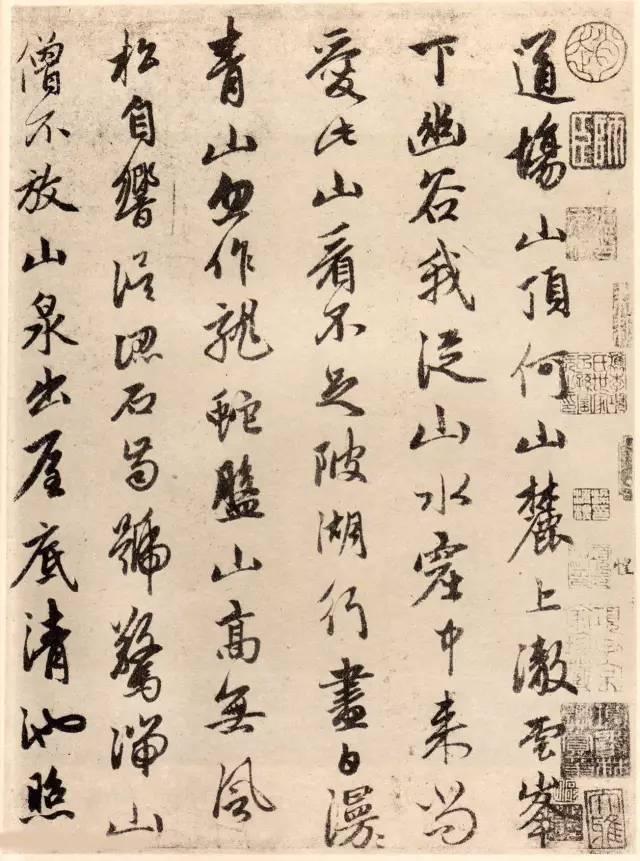 道塲山頂何山麓上澈雲峯
下幽谷我從山水窟中來尚
愛此山看不足陂湖行盡白漫〻
青山忽作龍蛇盤山高無風
松自響誤認石齒號驚湍山
僧不放山泉出屋底清池照
大雅